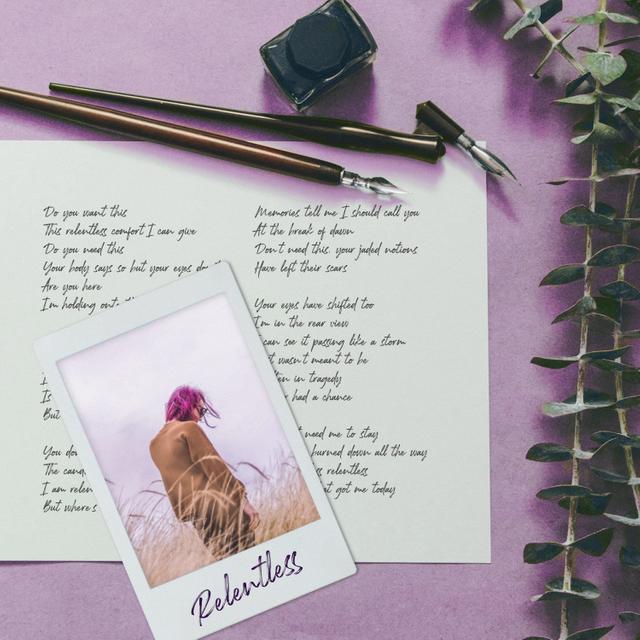 Do you want this
This relentless comfort I can give
Do you need this
Your body says so but your eyes
Are you here
Im holding onto
Is
But
You
The
I am
But where's
Memories tell me I should call you
At the break of dawn
Don't need this, your jaded notions
Have left their scars
Your eyes have shifted too
I'm in the rear view
can see it passing like a storm
wasn't meant to be
in tragedy
had a chance
need me to stay
burned down all the way
relentless
got me today
Relentless